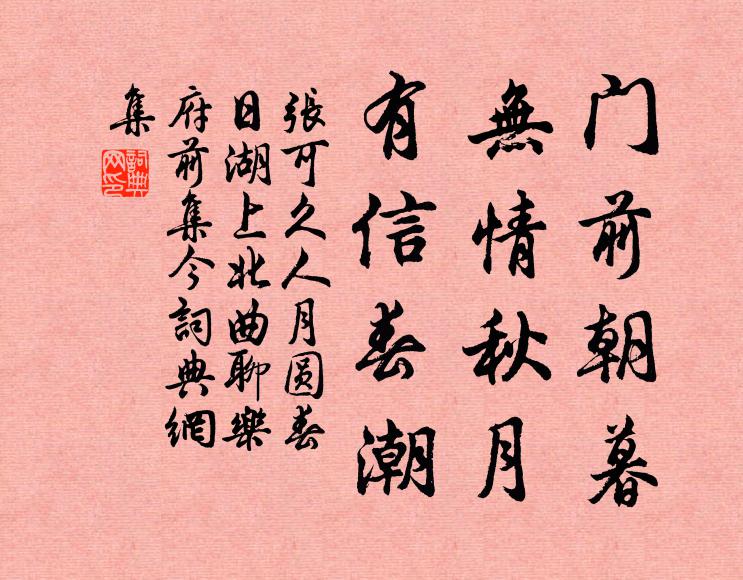 门前朝暮
無情秋月
有信春潮
張可久人月圆春
日湖上北曲聊樂
府前集今詞典網
集
詞典網印